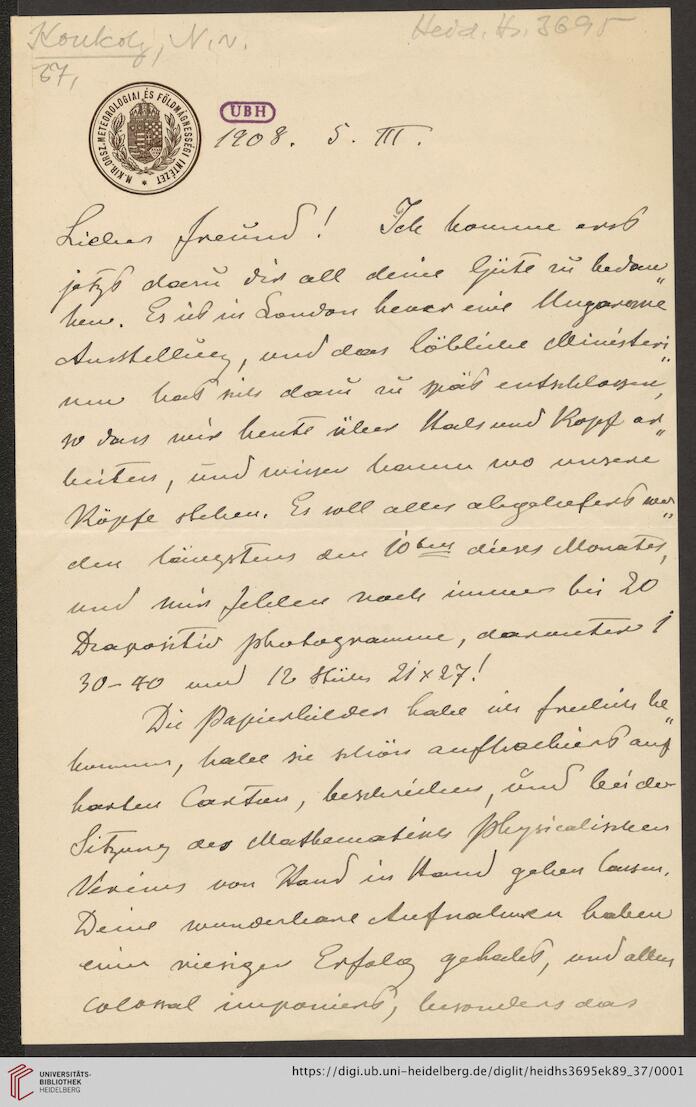 Konkoly, N.v.
Heid. Hs. 3695
67,
M. KIR. ORSZ. METEOROLOGIAI ÉS FÖLDMÁGNESSÉGI INTÉZET
UBH
1908. 5. III.
Lieber Freund! Ich komme erst
jetzt dazu dir all deine Güte zu bedan„
ken. Es ist in London heuer eine Ungarische
Ausstellung, und das löbliche Ministeri„
um hat sich dazu zu spät entschlossen,
so dass wir heute über Hals und Kopf ar„
beiten, und wissen kaum wo unsere
Köpfe stehen. Es soll alles abgeliefert wer„
den längstens den 10ten dieses Monates,
und mir fehlen noch immer bis 20
Diapositiv photogramme, darunter 1
30–40 und 12 Stück 21×27!
Die Papierbilder habe ich freilich be„
kommen, habe sie schön aufkachiert auf
harten Carton, beschrieben, und bei der
Sitzung des Mathematisch Physicalischen
Vereines von Hand in Hand gehen lassen.
Deine wunderbare Aufnahmen haben
einen riesigen Erfolg gehabt, und allen
colossal imponiert, besonders das
UNIVERSITÄTS-
BIBLIOTHEK
HEIDELBERG
https://digi.ub.uni-heidelberg.de/diglit/heidhs3695ek89_37/0001